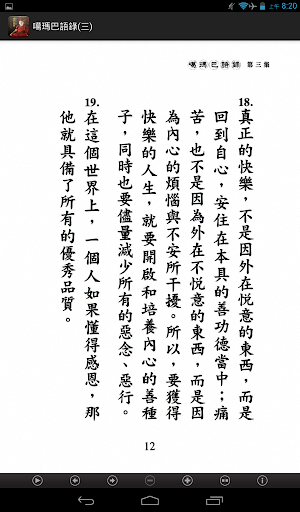 上午 8:20
噶瑪巴語錄(三)
噶瑪巴語錄 第三集
18. 真正的快樂，不是因外在悅意的東西，而是
回到自心，安住在本具的善功德當中；痛
苦，也不是因為外在不悅意的東西，而是因
為內心的煩惱與不安所干擾。所以，要獲得
快樂的人生，就要開啟和培養內心的善種
子，同時也要儘量減少所有的惡念、惡行。
19. 在這個世界上，一個人如果懂得感恩，那
他就具備了所有的優秀品質。
12